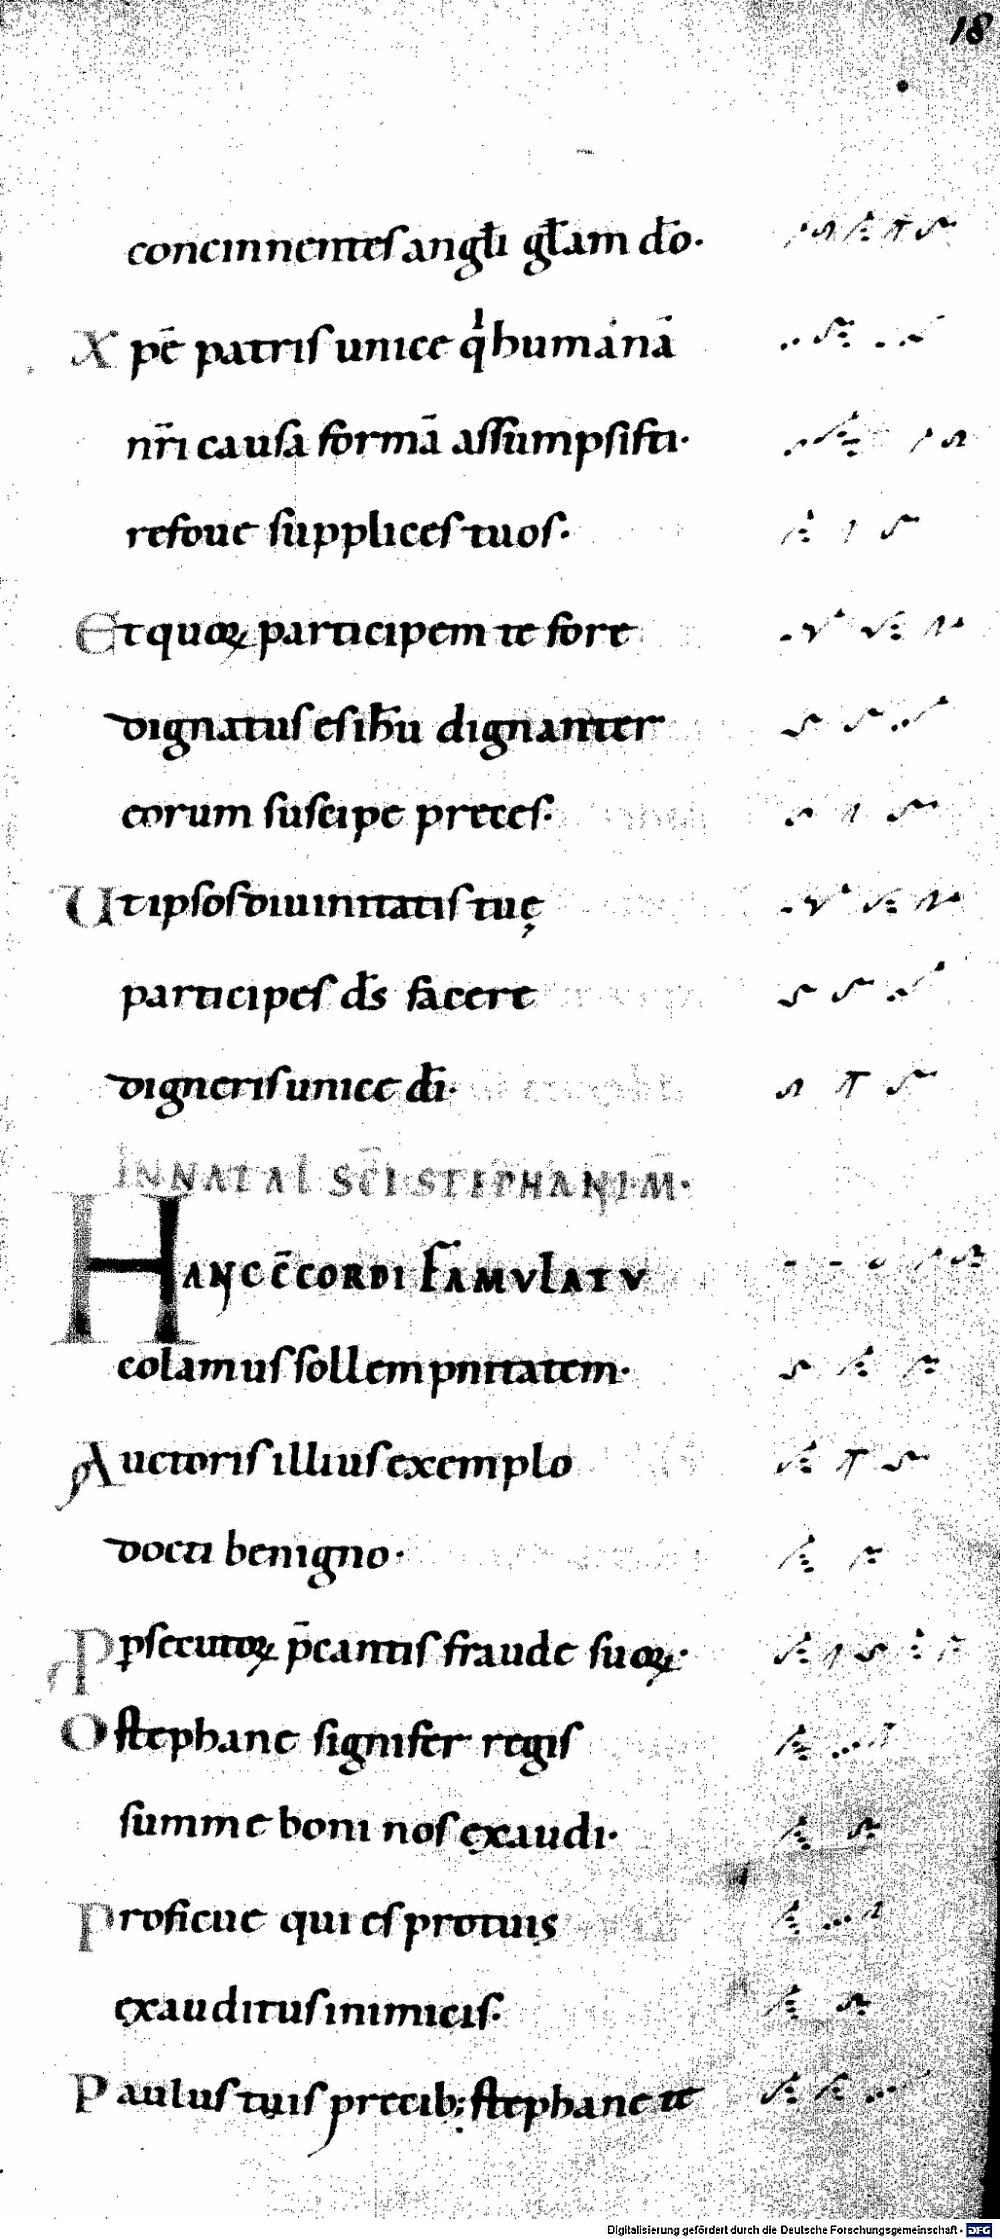 18
concinnentes angłi gła̅m do̅·
Xpe̅ patris unice qͥ humana̅
nr̅i causa forma̅ assumpsisti·
refoue supplices tuos·
Et quoꝝ participem te fore
dignatus es ih̅u dignanter
eorum suscipe preces·
Ut ipsos diuinitatis tuę
participes d̅s facere
digneris unice d̅i·
IN NATAL SC̅I STEPHANI M̅·
HANC C̅CORDI FAMULATU
colamus sollempnitatem·
Auctoris illius exemplo
docti benigno·
Pꝑsecutoꝝ p̅cantis fraude suoꝝ·
O stephane signifer regis
summe boni nos exaudi·
Proficue qui es pro tuis
exauditus inimicis·
Paulus tuis precib; stephane te
Digitalisierung gefördert durch die Deutsche Forschungsgemeinschaft - DFG